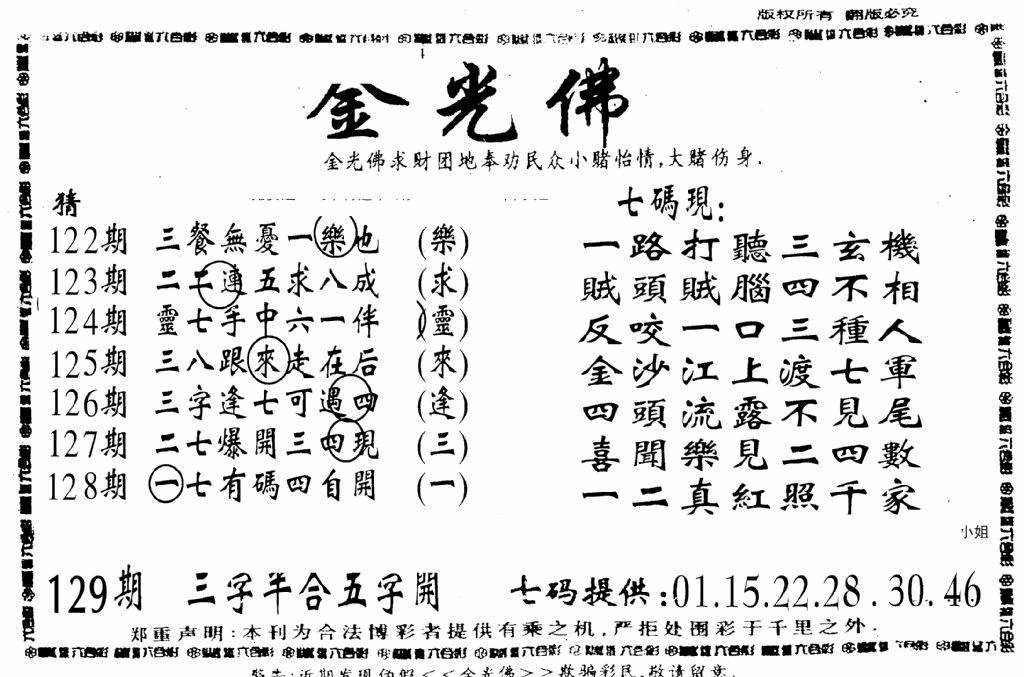 版权所有 翻版必究
金光佛
金光佛求财团地奉劝民众小赌怡情,大赌伤身.
猜
122期 三餐無憂一樂也 (樂)
123期 二二連五求八成 (求)
124期 靈七手中六一伴 (靈)
125期 三八跟來走在后 (來)
126期 三字逢七可遇四 (逢)
127期 二七爆開三四現 (三)
128期 一七有碼四自開 (一)
七碼現:
一路打聽三玄機
賊頭賊腦四不相
反咬一口三種人
金沙江上渡七軍
四頭流露不見尾
喜聞樂見二四數
一二真紅照千家
小姐
129期 三字半合五字開 七码提供:01.15.22.28.30.46
郑重声明:本刊为合法博彩者提供有乘之机,严拒处围彩于千里之外.
警告:近期发现伪假<<金光佛>>欺骗彩民,敬请留意.